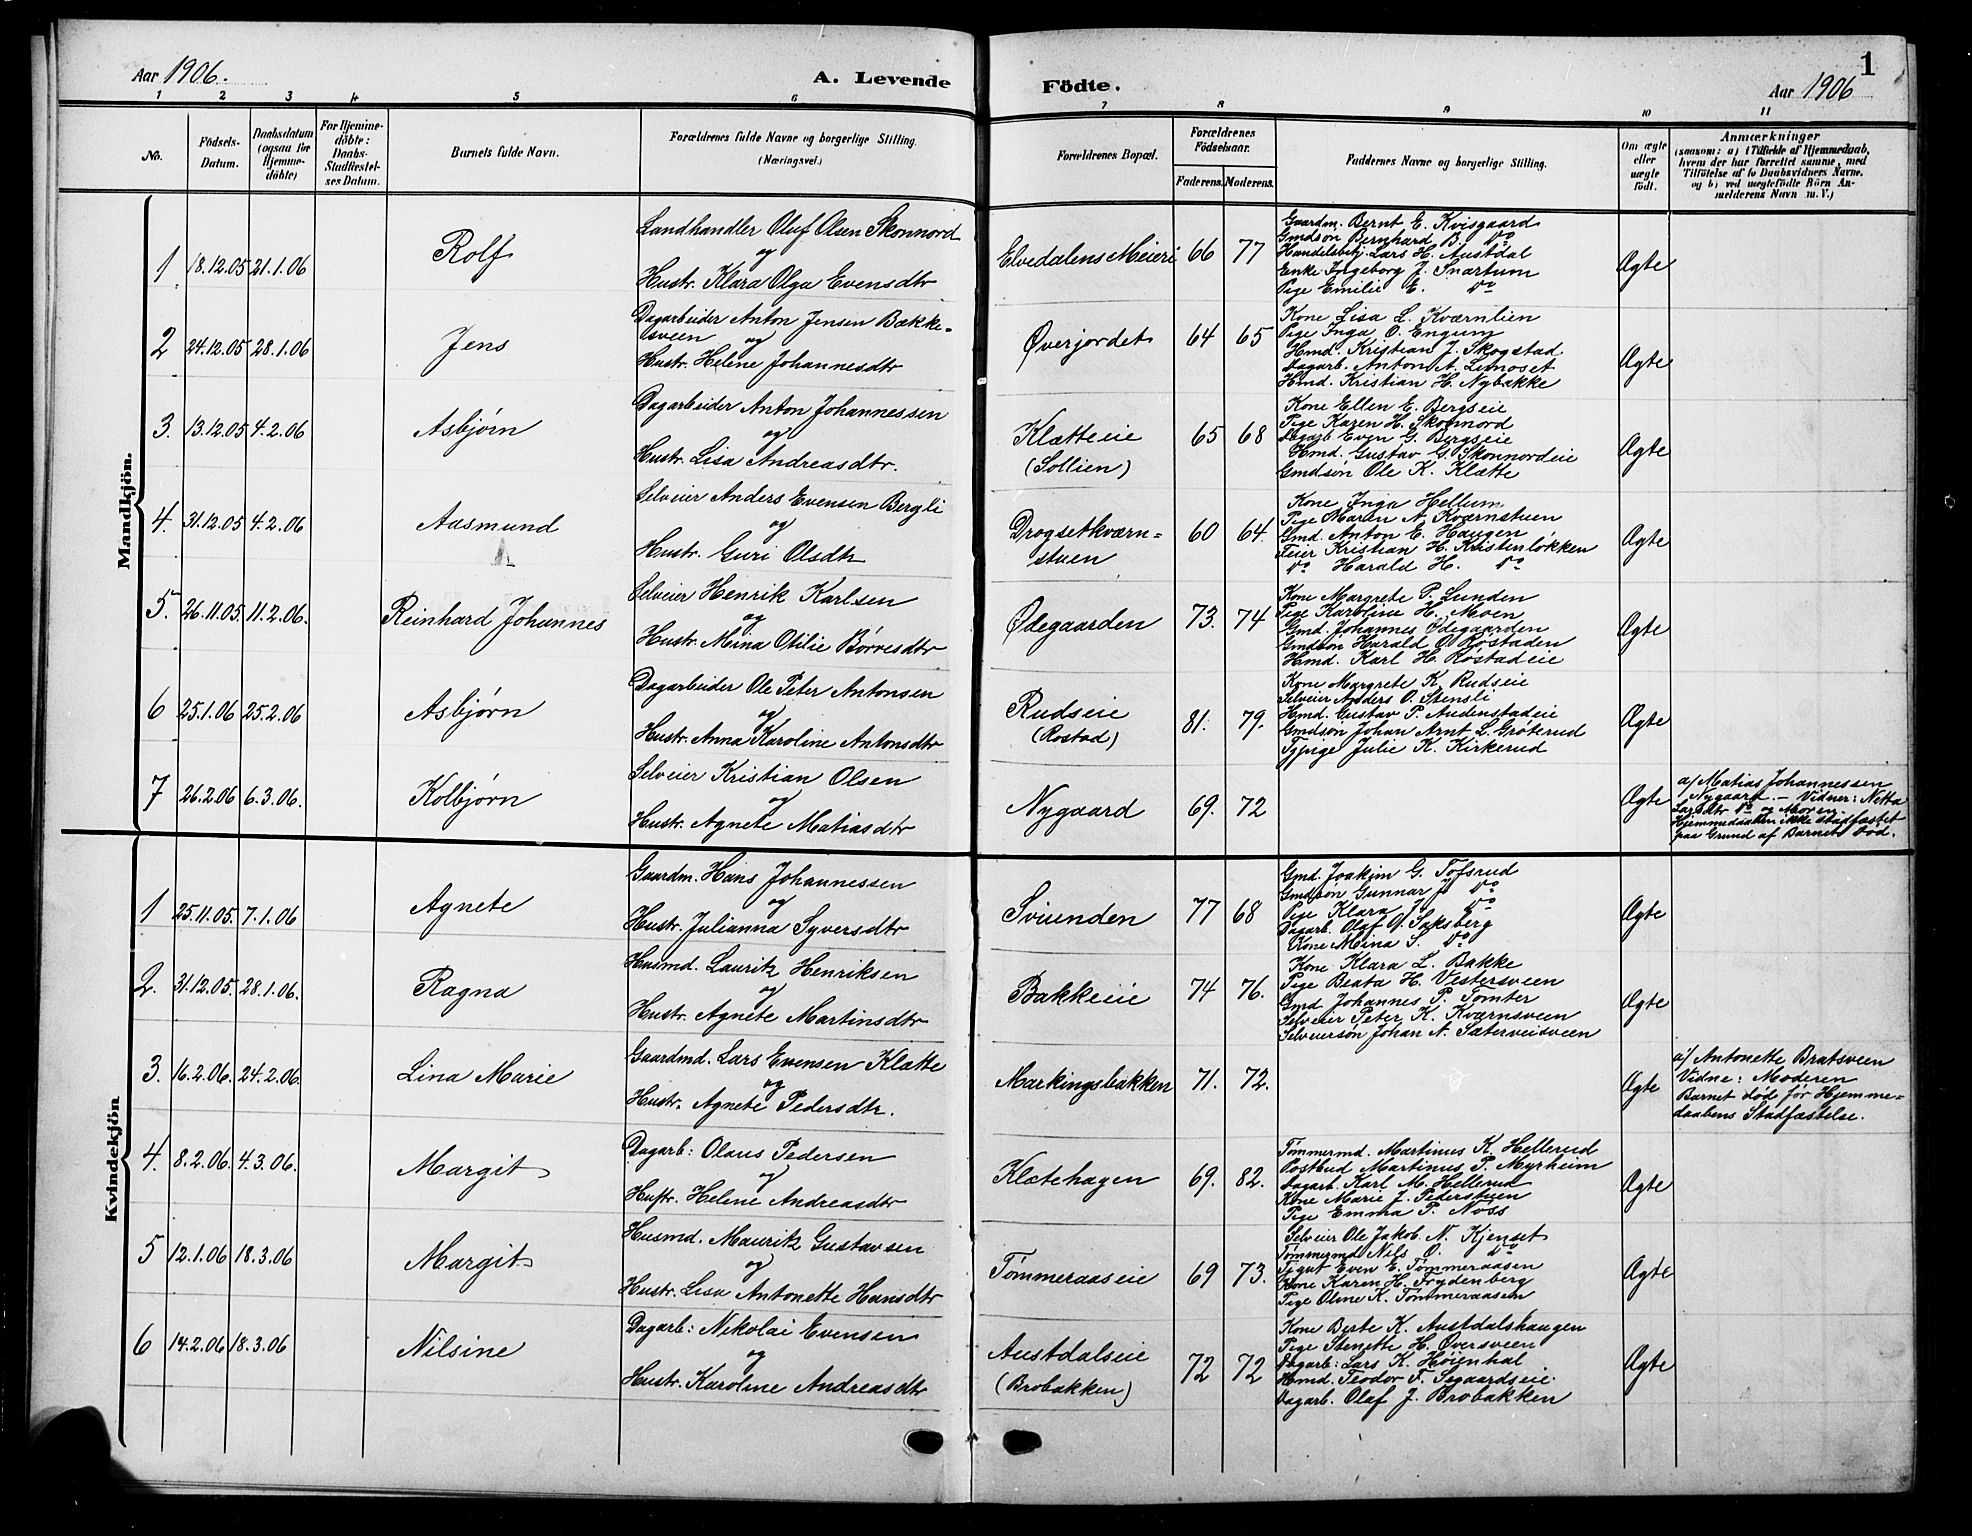 Aar 1906.
A. Levende Födte.
Aar 1906
1
1 2 3 4 5 6 7 8 9 10 11
No.
Födsels-Datum.
Daabsdatum (ogsaa for Hjemme-döbte)
For Hjemme-döbte: Daabs-Stadfæstel-ses Datum.
Barnets fulde Navn.
Forældrenes fulde Navne og borgerlige Stilling. (Næringsvei.)
Forældrenes Bopæl.
Forældrenes Födselsaar.
Faderens. Moderens.
Faddernes Navne og borgerlige Stilling.
Om ægte eller uægte født.
Anmærkninger
(saasom: a) i Tilfælde af Hjemmedaab,
hvem der har forrettet samme, med
Tilføielse af to Daabsvidners Navne,
og b) ved uægtefödte Börn An-
melderens Navn m.V.)
Mandkjön.
1 18.12.05 21.1.06
Rolf
Landhandler Oluf Olsen Skonnord
og
Hustr. Klara Olga Evensdtr
Elvedalens Meieri 66 77
Gaardm. Bernt E. Kvisgaard
Gmdsøn Bernhard B. do
Handelsbetj. Lars H. Austdal
Enke Ingeborg J. Snartum
Pige Emilie E. do
Ægte
2 24.12.05 28.1.06
Jens
Dagarbeider Anton Jensen Bække=
sveen og
Hustr. Helene Johannesdtr
Øverjordet 64 65
Kone Lisa L. Kværnlien
Pige Inga O. Engum
Hmd. Kristian J. Skogstad
Dagarb. Anton A. Lunoset
Hmd. Kristian H. Nybakke
Ægte
3. 13.12.05 4.2.06
Asbjørn
Dagarbeider Anton Johannessen
og
Hustr. Lisa Andreasdtr.
Klætteeie
(Sollien)
65 68
Kone Ellen E. Bergseie
Pige Karen H. Skonnord
Dagarb Even G. Bergseie
Hmd. Gustav G. Skonnordeie
Gmdsøn Ole K. Klætte
Ægte
4. 31.12.05 4.2.06
Aasmund
Selveier Anders Evensen Bergli
og
Hustr. Guri Olsdtr
Drogsetkværn=
stuen
60 64.
Kone Inga Hellum
Pige Maren A. Kværnstuen
Gmd. Anton E. Haugen
Feier Kristian H. Kristenløkken
do Harald H. do
Ægte
5. 26.11.05. 11.2.06.
Reinhard Johannes
Selveier Henrik Karlsen
og
Hustr. Mina Otilie Børresdtr
Ødegaarden 73. 74
Kone Margrete P. Lunden
Pige Karoline H. Moen
Gmd. Johannes Ødegaarden
Gmdsøn Harald O. Røstaden
Hmd. Karl H. Røstadeie
Ægte
6 25.1.06 25.2.06
Asbjørn
Dagarbeider Ole Peter Antonsen
og
Hustr. Anna Karoline Antonsdtr
Rudseie
(Rostad)
81. 79.
Kone Margrete K. Rudseie
Selveier Anders O. Stensli
Hmd. Gustav P. Audenstadeie
Gmdsøn Johan Arnt L. Grøterud
Tjpige Julie K. Kirkerud
Ægte
7 26.2.06 6.3.06.
Kolbjørn
Selveier Kristian Olsen
og
Hustr. Agnete Matiasdtr
Nygaard 69. 72
Ægte
a/ Matias Johannessen
Nygaard. – Vidner: Netta
Larsdtr do og Moren.
Hjemmedaaben ikke stadfæstet
paa Grund af Barnets Død.
Kvindekjön
1 25.11.05. 7.1.06
Agnete
Gaardm. Hans Johannessen
og
Hustr. Julianna Syversdtr
Sviunden 77 68
Gmd. Joakim G. Tofsrud
Gmdsøn Gunnar J. do
Pige Klara J. do
Dagarb. Olaf O. Saksberg
Kone Mina S. do
Ægte
2. 31.12.05. 28.1.06.
Ragna
Husmd. Lauritz Henriksen
og
Hustr. Agnete Martinsdtr
Bakkeeie 74 76.
Kone Klara L. Bakke
Pige Beata H. Vestersveen
Gmd Johannes P. Tomter
Selveier Peter K. Kværnsveen
Selveiersøn Johan N. Sæterveisveen
Ægte
3. 16.2.06. 24.2.06.
Lina Marie
Gaardmd. Lars Evensen Klætte
og
Hustr. Agnete Pedersdtr.
Markingsbakken 71. 72.
Ægte
a/ Antonette Bratsveen
Vidne: Moderen
Barnet død før Hjemme=
daabens Stadfæstelse.
4. 8.2.06. 4.3.06.
Margit
Dagarb: Olaus Pedersen
og
Hustr. Helene Andreasdtr
Klætehagen 69. 82.
Tømmermd. Martinus K. Hellerud
Postbud Martinus P. Myrheim
Dagarb. Karl M. Hellerud
Kone Marie J. Pederstuen
Pige Emma P. Noss
Ægte
5 12.1.06 18.3.06
Margit
Husmd. Mauritz Gustavsen
og
Hustr. Lisa Antonette Hansdtr
Tømmeraaseie 69 73.
Selveier Ole Jakob N. Kjenset
Tømmermd Nils O. do
Tjgut Even E. Tømmeraasen
Kone Karen H. Frydenberg
Pige Oline K. Tømmeraasen
Ægte
6 14.2.06 18.3.06
Nilsine
Dagarb: Nikolai Evensen
og
Hustr. Karoline Andreasdtr
Austdalseie
(Brobakken)
72 72
Kone Berte K. Austdalshaugen
Pige Stenette H. Øversveen
Dagarb: Lars K. Høienhal
Hmd. Teodor F. Isgaardseie.
Dagarb. Olaf J. Brobakken
Ægte